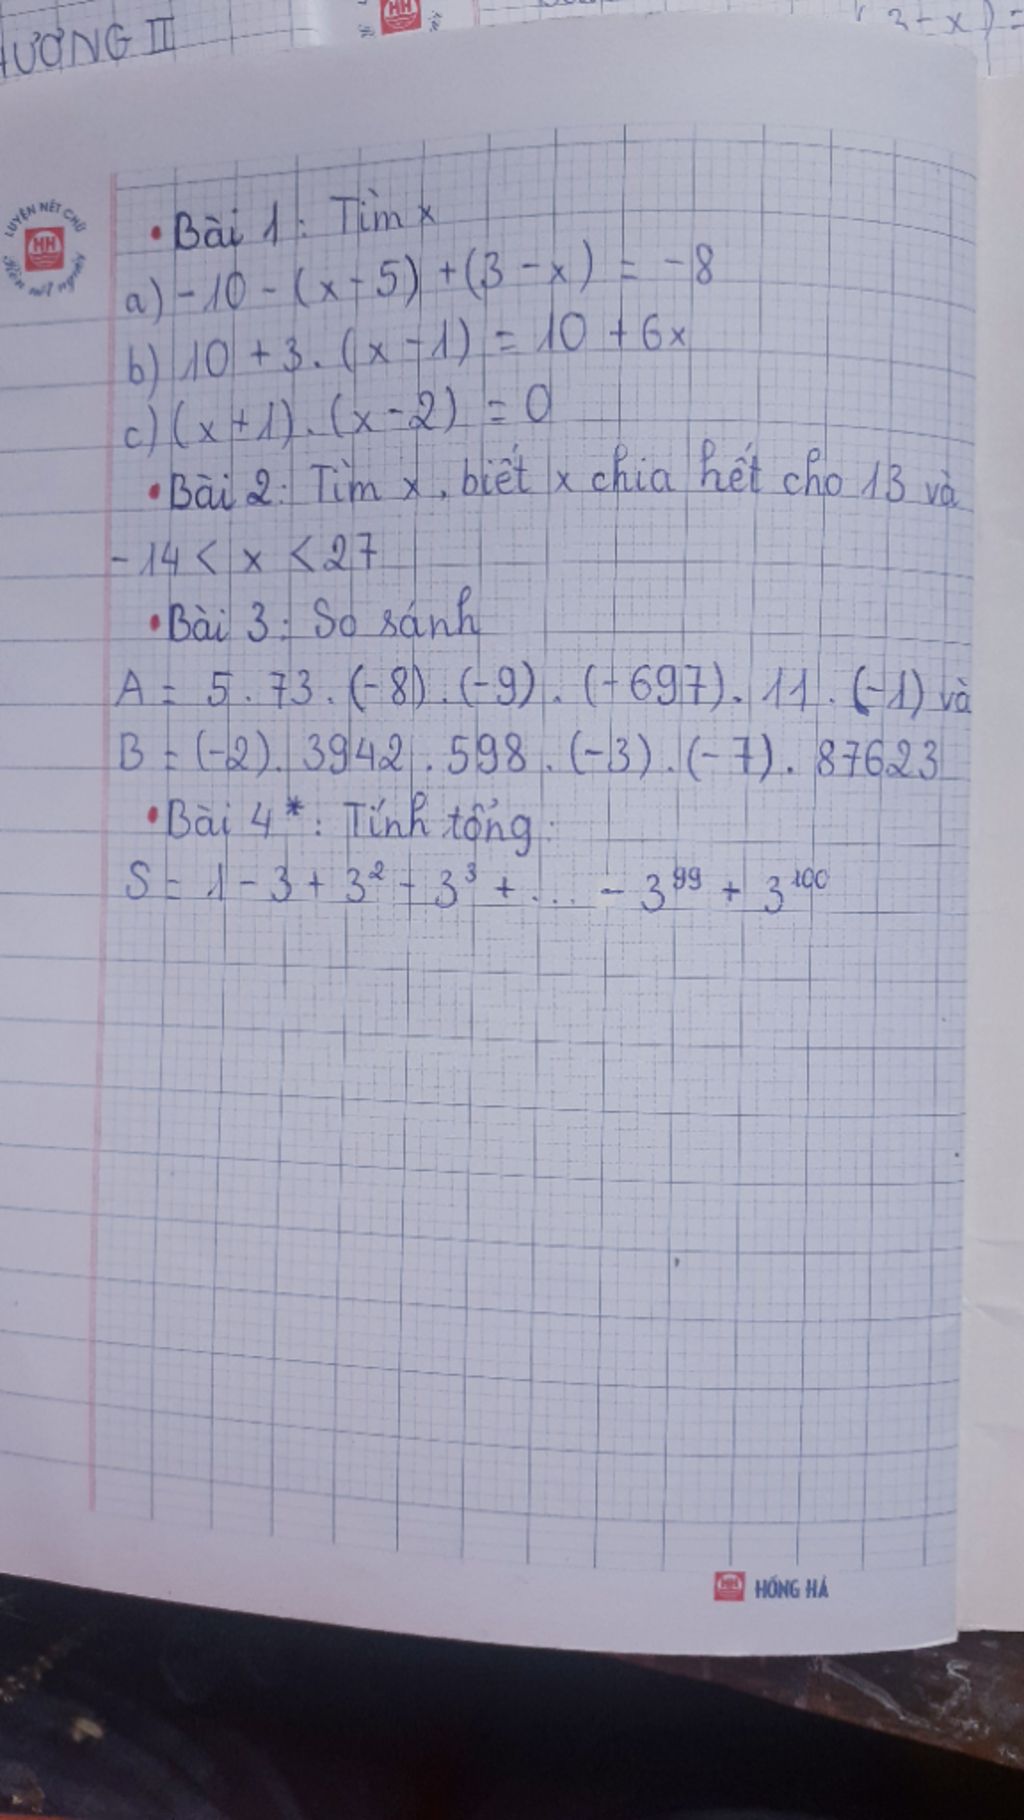 ƯƠNG II
HH
3-x) =
LUYỆN NÉT CHỮ
HH
Rèn nết người
• Bài 1: Tìm x
a) -10 - (x - 5) + (3 - x) = -8
b) 10 + 3. (x - 1) = 10 + 6x
c) (x + 1). (x - 2) = 0
• Bài 2: Tìm x, biết x chia hết cho 13 và
-14 < x < 27
• Bài 3: So sánh
A = 5. 73. (-8). (-9). (-697). 11. (-1) và
B = (-2). 3942. 598. (-3). (-7). 87623
• Bài 4*: Tính tổng:
S = 1 - 3 + 3² - 3³ + ... - 3⁹⁹ + 3¹⁰⁰
HH HỒNG HÀ